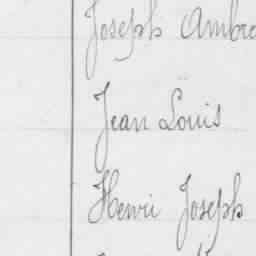 Joseph Ambro
Jean Louis
Henri Joseph